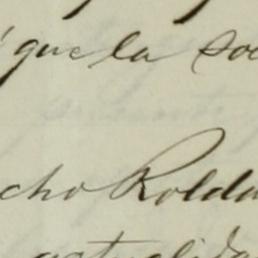 que la soc
cho Rolda
actualida